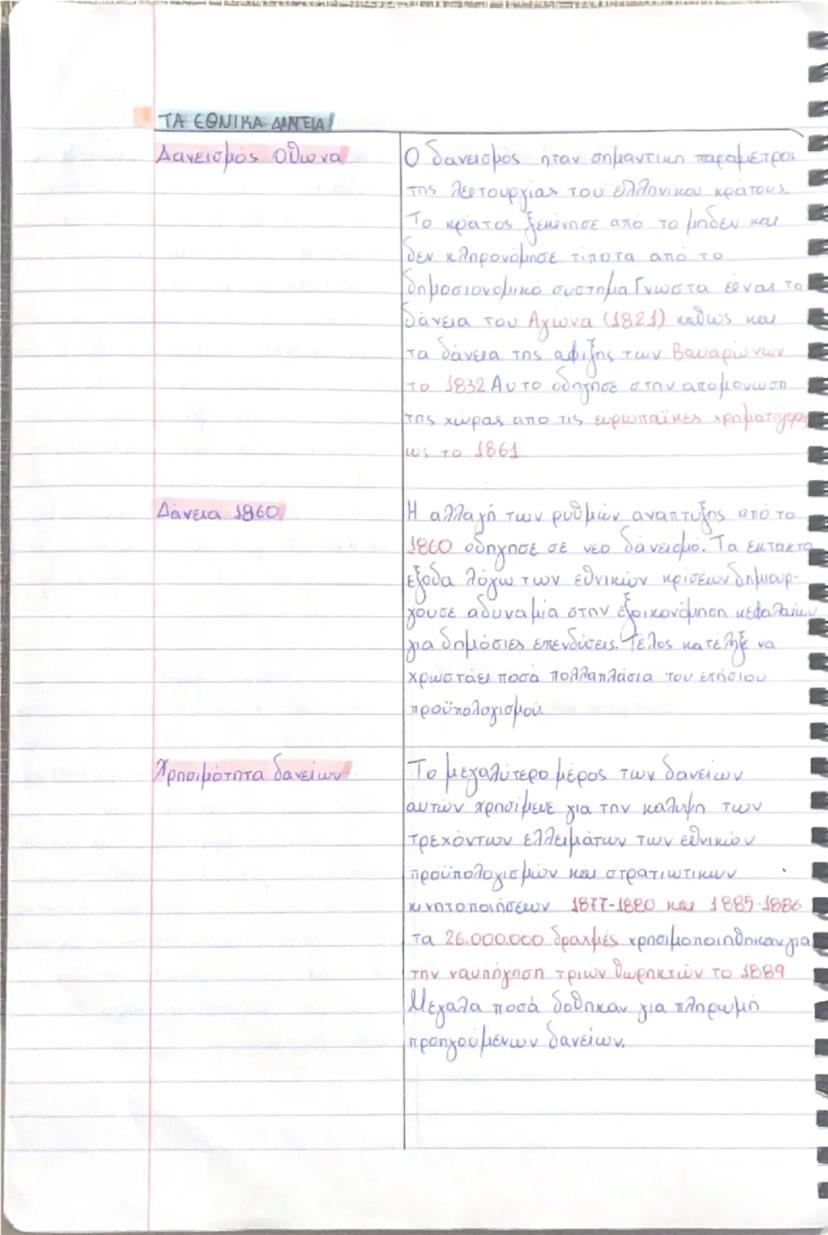 ΤΑ ΕΘΝΙΚΑ ΔΑΝΕΙΑ
Δανεισμός Οθωνα
Ο δανεισμός ήταν σημαντικη παραμετρος
της λειτουργίας του ελληνικου κρατους
Το κρατος ξεκινησε από το μηδεν και
δεν κληρονόμησε τιποτα από το
δημοσιονομικο συστημα Γνωστα ειναι τα
δάνεια του Αγώνα (1821) καθως και
τα δάνεια της αφιξης των Βαυαρών των
το 1832 Αυτο οδηγησε στην απομονωση
της χώρας απο τις ευρωπαϊκες
ως το 1861
Δάνεια 1860
Η αλλαγή των ρυθμών αναπτυξης από το
1860 οδηγησε σε νεο δανεισμό. Τα εκτακτα
εξοδα λόγω των εθνικών κρισεων δημιουρ-
γουσε αδυναμία στην εξοικονόμηση κεφαλαίων
για δημόσιες επενδύσεις. Τέλος κατέληξε να
χρωστάει ποσά πολλαπλάσια του ετήσιου
προϋπολογισμού
Χρησιμότητα δανείων
Το μεγαλύτερο μέρος των δανείων
αυτών χρησίμευε για την καλυψη των
τρεχόντων ελλειμάτων των εθνικών
προϋπολογισμών και στρατιωτικων
κινητοποιήσεων 1877-1880 και 1885-1886
τα 26.000.000 δραχμές χρησιμοποιηθηκαν για
την ναυπήγηση τριών θωρηκτών το 1889
Μεγαλα ποσά δοθηκαν για πληρωμή
προηγούμενων δανείων.